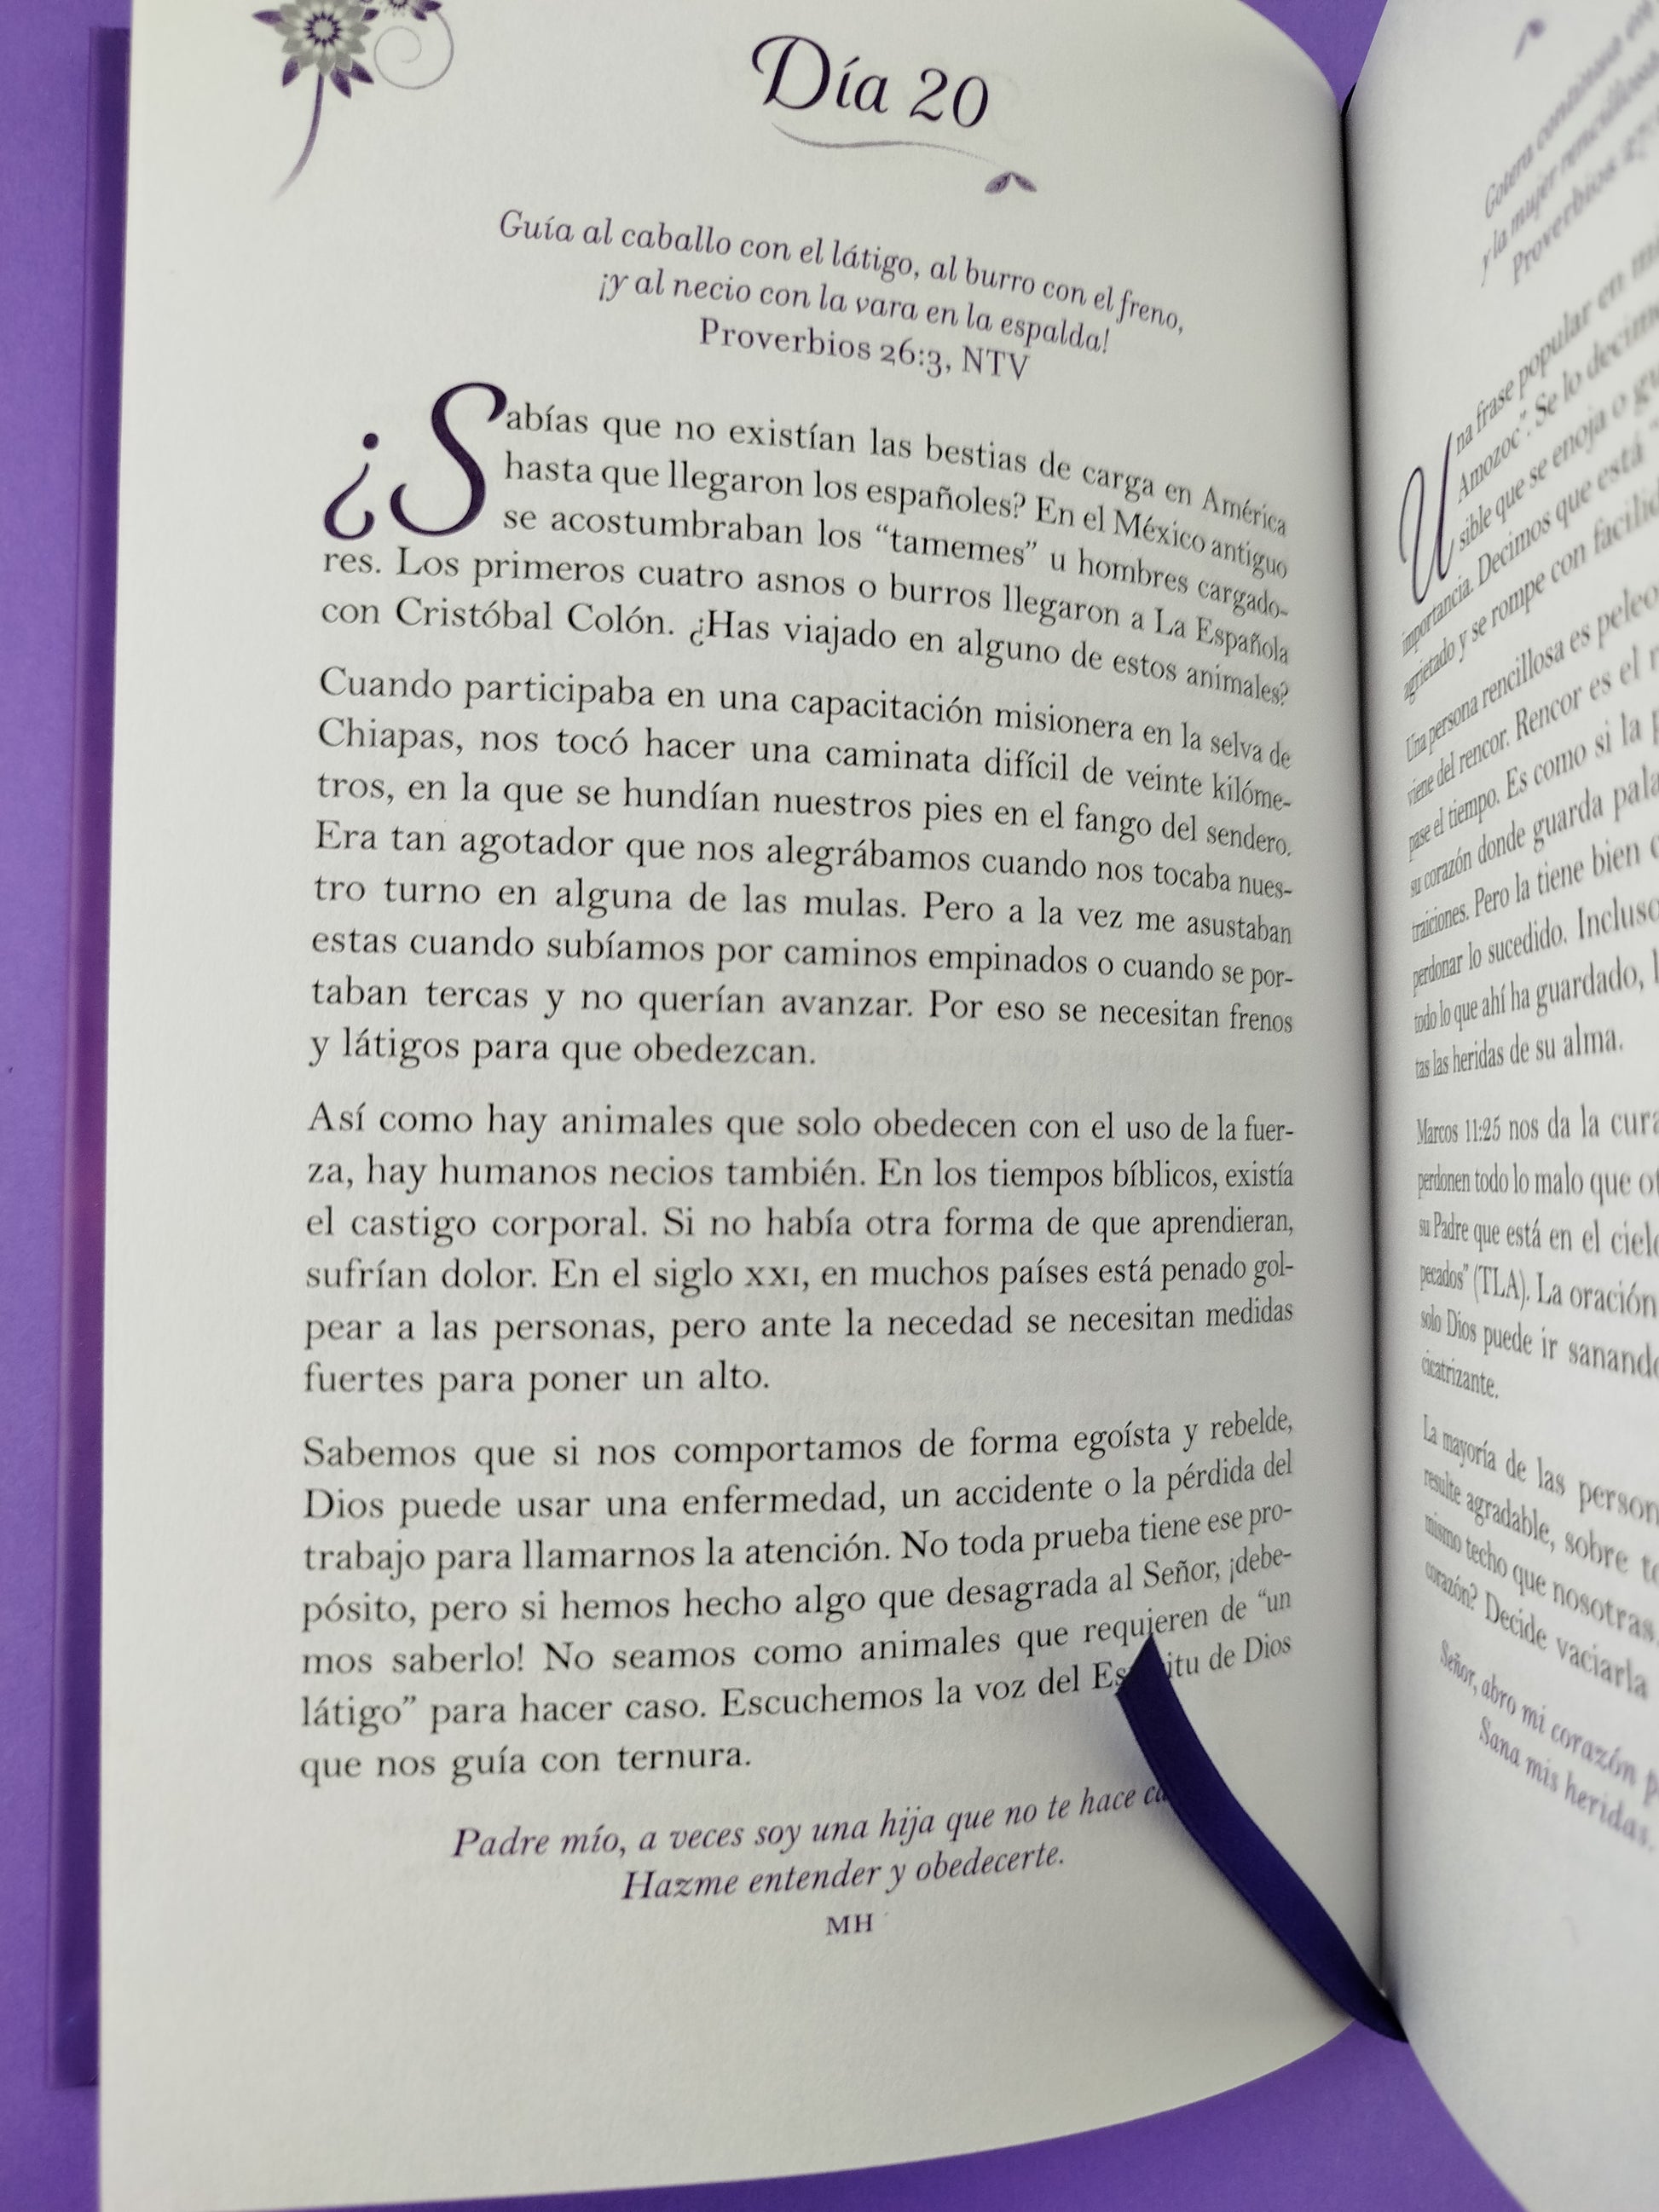 Día 20
Guía al caballo con el látigo, al burro con el freno,
¡y al necio con la vara en la espalda!
Proverbios 26:3, NTV
¿Sabías que no existían las bestias de carga en América
hasta que llegaron los españoles? En el México antiguo
se acostumbraban los “tamemes” u hombres cargado-
res. Los primeros cuatro asnos o burros llegaron a La Española
con Cristóbal Colón. ¿Has viajado en alguno de estos animales?
Cuando participaba en una capacitación misionera en la selva de
Chiapas, nos tocó hacer una caminata difícil de veinte kilóme-
tros, en la que se hundían nuestros pies en el fango del sendero.
Era tan agotador que nos alegrábamos cuando nos tocaba nues-
tro turno en alguna de las mulas. Pero a la vez me asustaban
estas cuando subíamos por caminos empinados o cuando se por-
taban tercas y no querían avanzar. Por eso se necesitan frenos
y látigos para que obedezcan.
Así como hay animales que solo obedecen con el uso de la fuer-
za, hay humanos necios también. En los tiempos bíblicos, existía
el castigo corporal. Si no había otra forma de que aprendieran,
sufrían dolor. En el siglo XXI, en muchos países está penado gol-
pear a las personas, pero ante la necedad se necesitan medidas
fuertes para poner un alto.
Sabemos que si nos comportamos de forma egoísta y rebelde,
Dios puede usar una enfermedad, un accidente o la pérdida del
trabajo para llamarnos la atención. No toda prueba tiene ese pro-
pósito, pero si hemos hecho algo que desagrada al Señor, ¡debe-
mos saberlo! No seamos como animales que requieren de “un
látigo” para hacer caso. Escuchemos la voz del Espíritu de Dios
que nos guía con ternura.
Padre mío, a veces soy una hija que no te hace
Hazme entender y obedecerte.
MH
Gotera
y la mujer
Proverbios
Una frase popular en
Amozoc”. Se lo
sible que se enoja o
importancia. Decimos que está
agrietado y se rompe con
Una persona rencillosa es
viene del rencor. Rencor es el
pase el tiempo. Es como si la
su corazón donde guarda
traiciones. Pero la tiene bien
perdonar lo sucedido. Incluso
todo lo que ahí ha guardado,
tas las heridas de su alma.
Marcos 11:25 nos da la
perdonen todo lo malo que
su Padre que está en el
pecados” (TLA). La oración
solo Dios puede ir
cicatrizante.
La mayoría de las
resulte agradable, sobre
mismo techo que nosotras.
corazón? Decide vaciarla
Señor, abro mi corazón
Sana mis heridas.